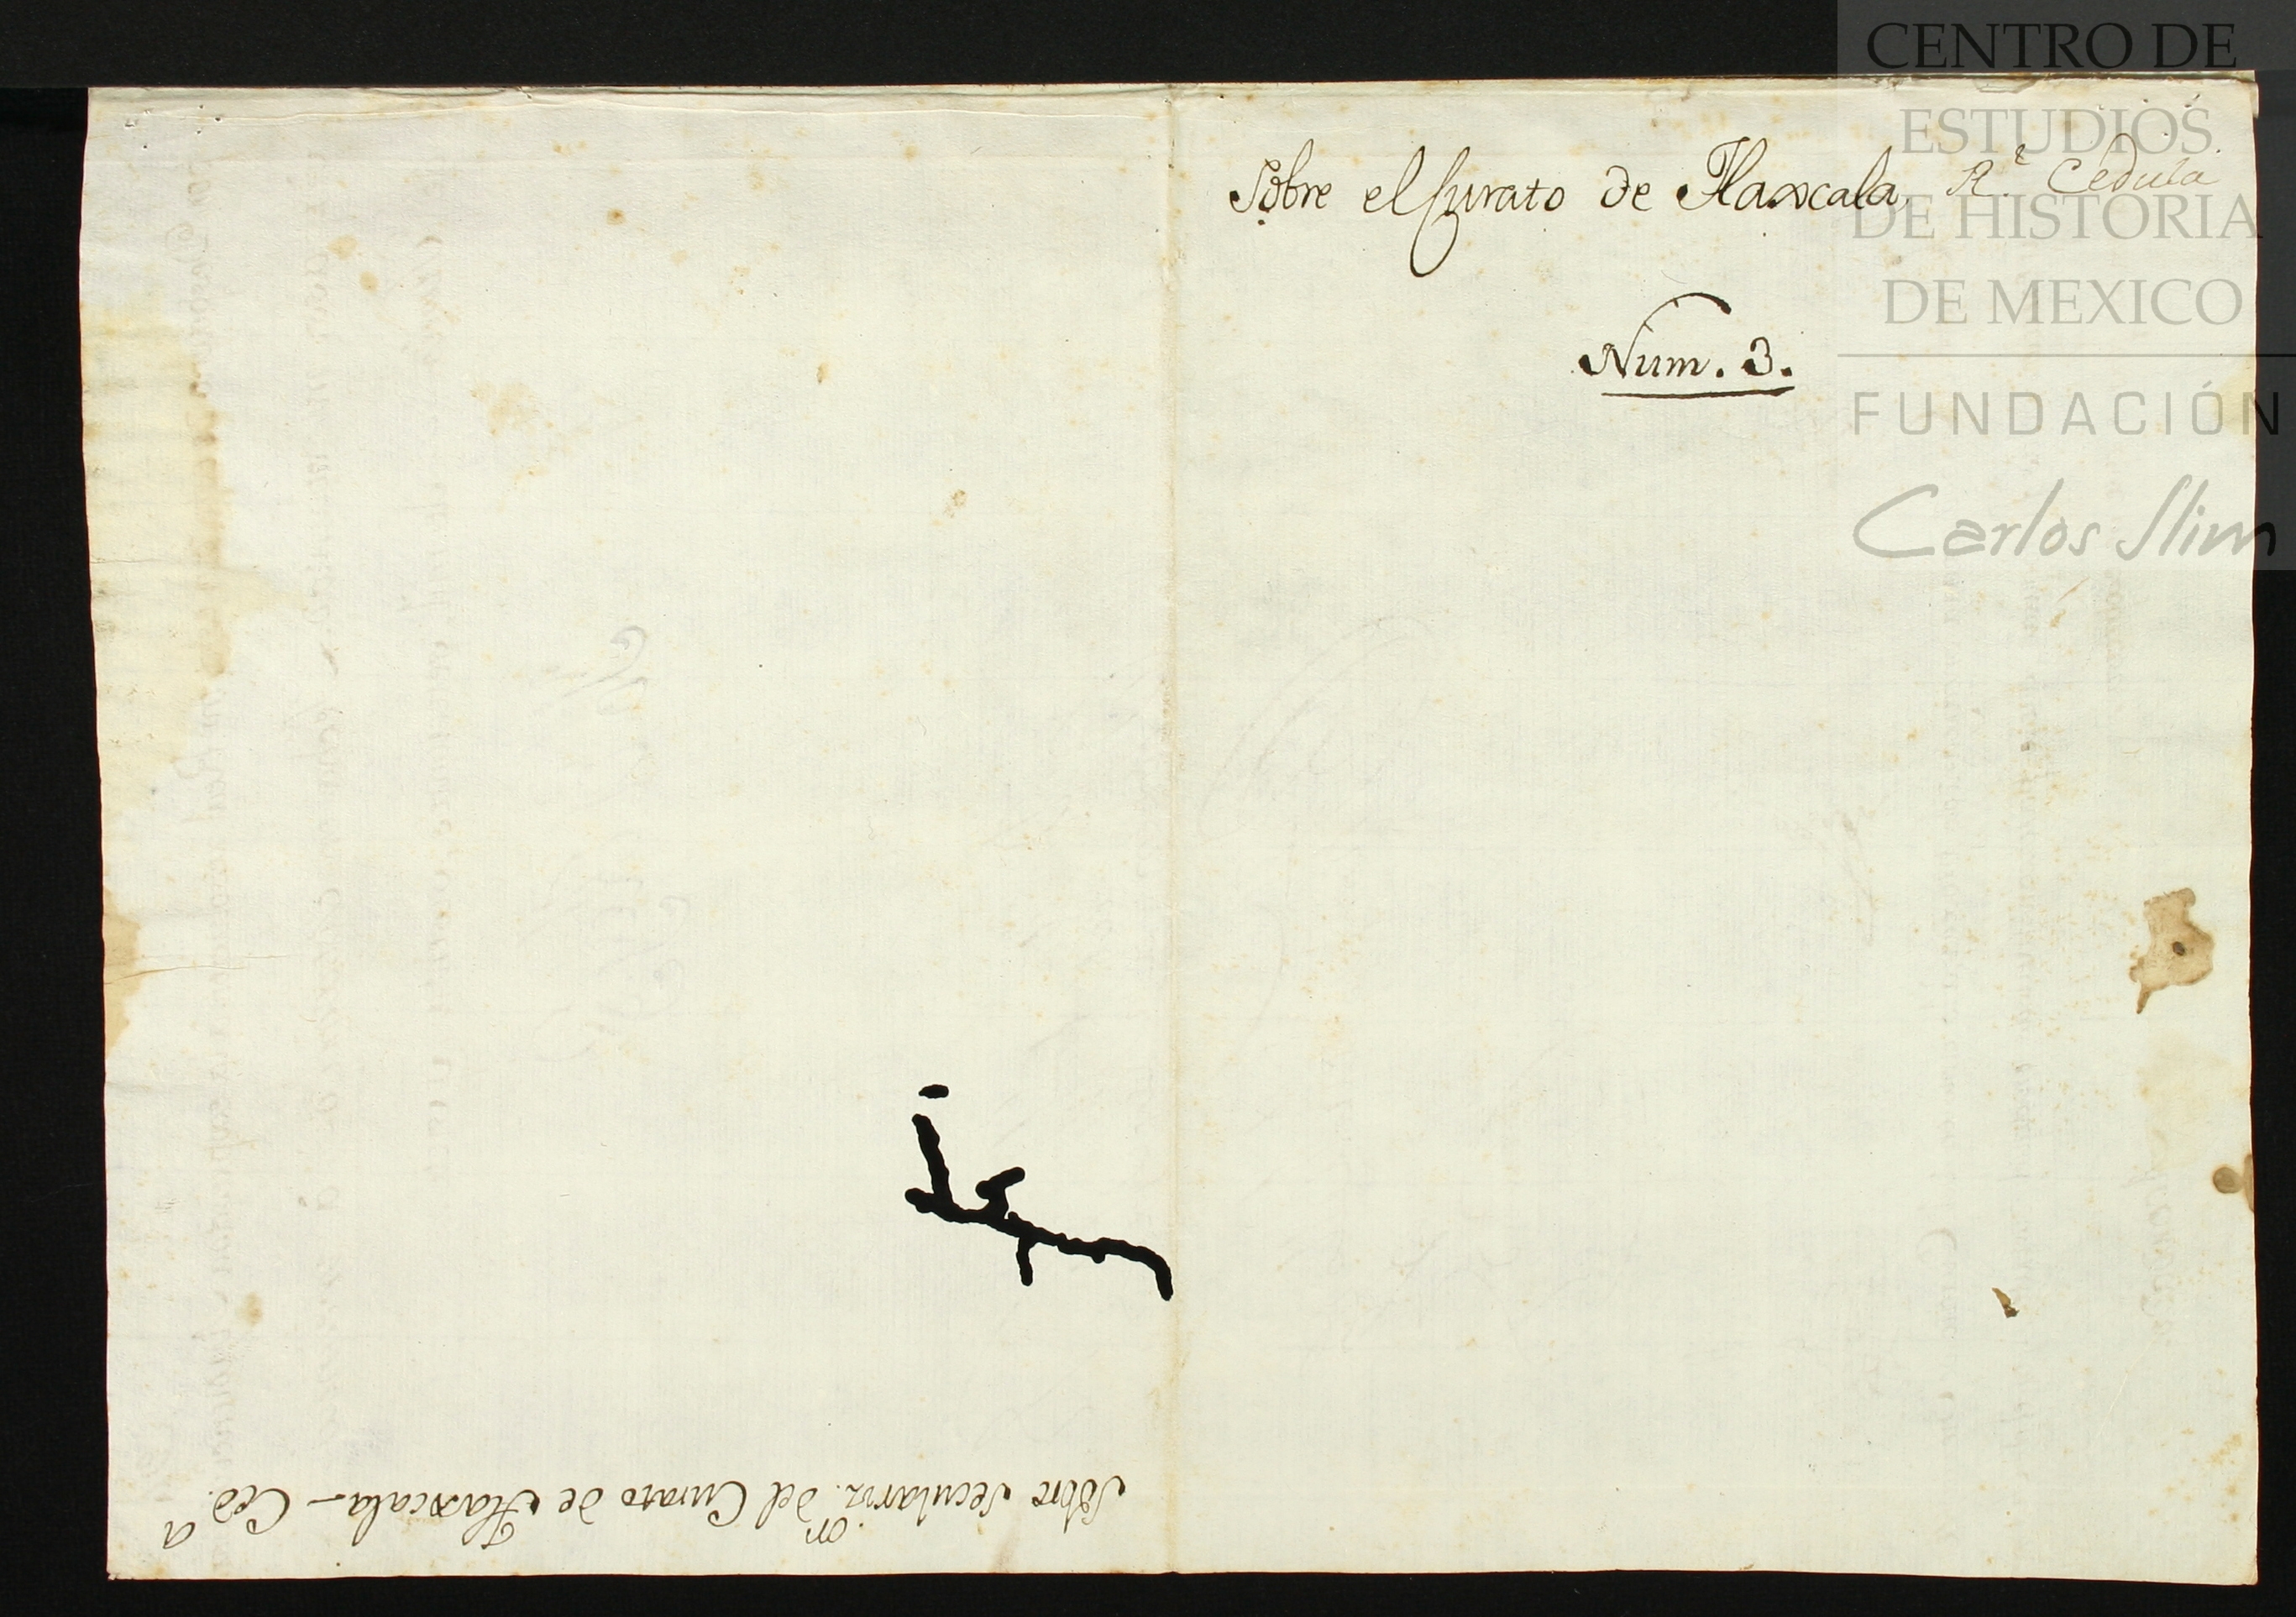 Sobre el Curato de Tlaxcala, Rl. Cedula
Num. 3.
Sobre seculariz.on del Curato de Tlaxcala - Ced.a
CENTRO DE
ESTUDIOS
DE HISTORIA
DE MEXICO
FUNDACIÓN
Carlos Slim